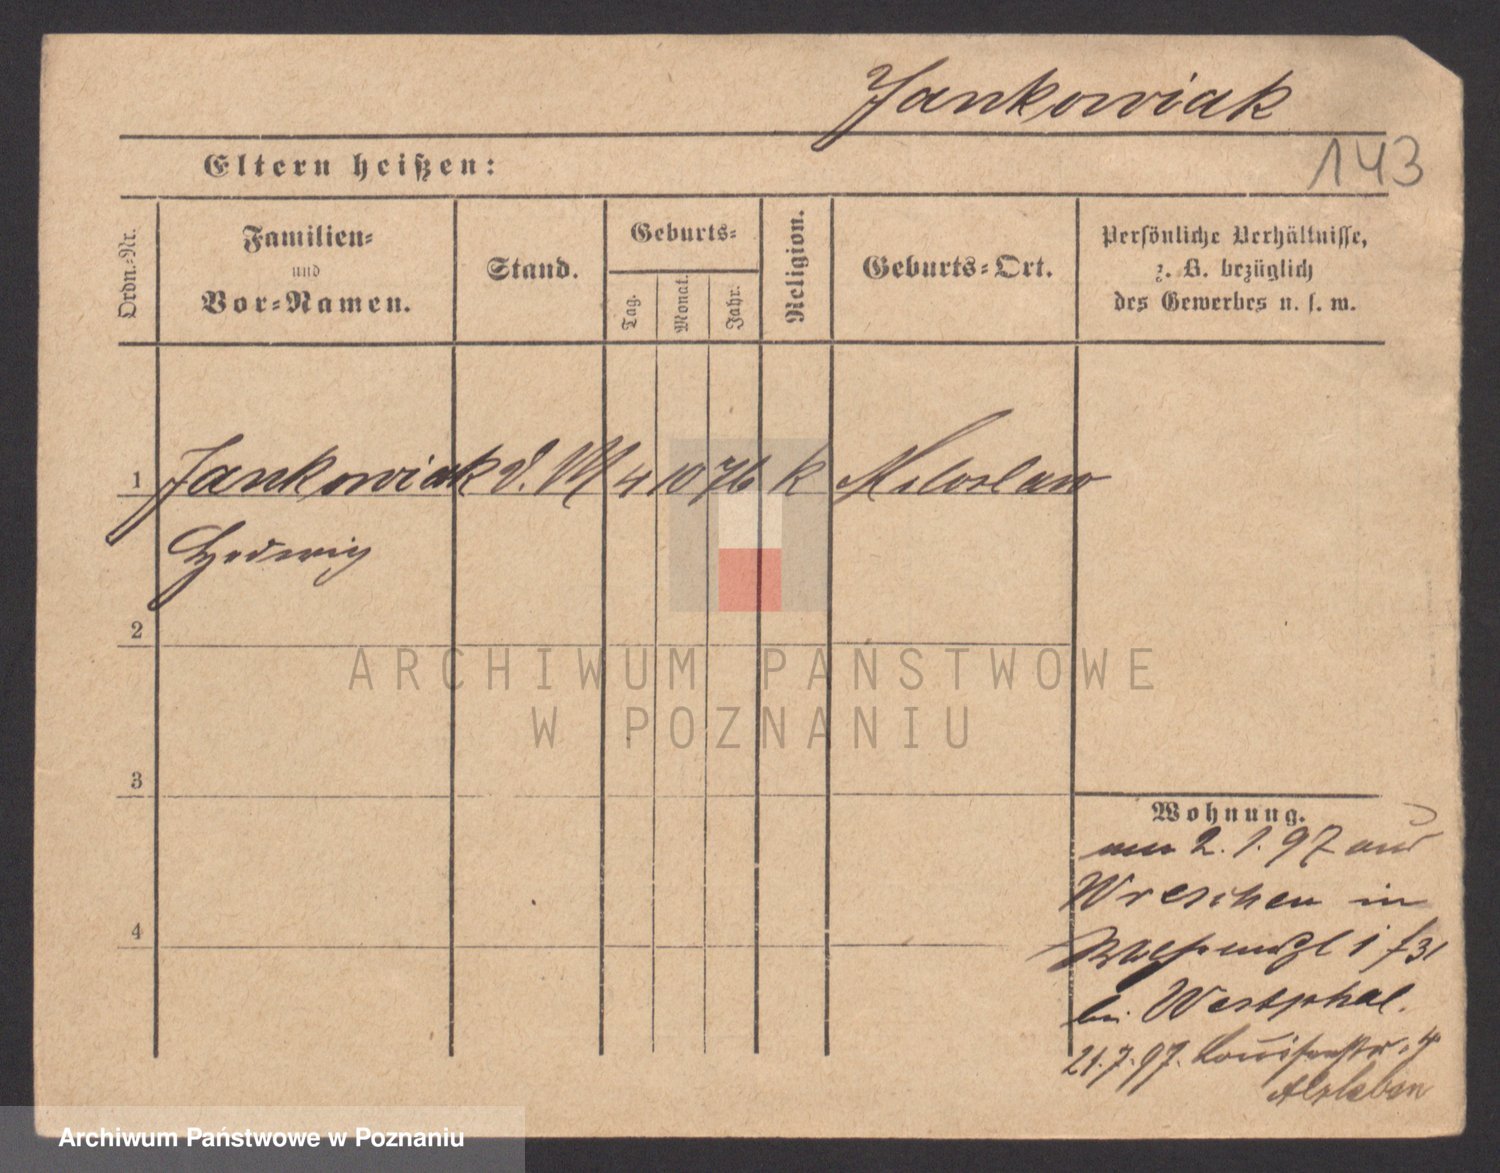 Jankowiak
143
Eltern heißen:
Ordn.-Nr.
Familien-
und
Vor-Namen.
Stand.
Geburts-
Tag.
Monat.
Jahr.
Religion.
Geburts-Ort.
Persönliche Verhältnisse,
z. B. bezüglich
des Gewerbes u. s. w.
1 Jankowiak d. M 4 10 76 k Miloslaw
Hedwig
2
3
4
Wohnung.
am 2. 1. 97 aus
Wreschen in
bei Westphal.
21.7.97. Louisenstr. 4
Alsleben
ARCHIWUM PAŃSTWOWE
W POZNANIU
Archiwum Państwowe w Poznaniu